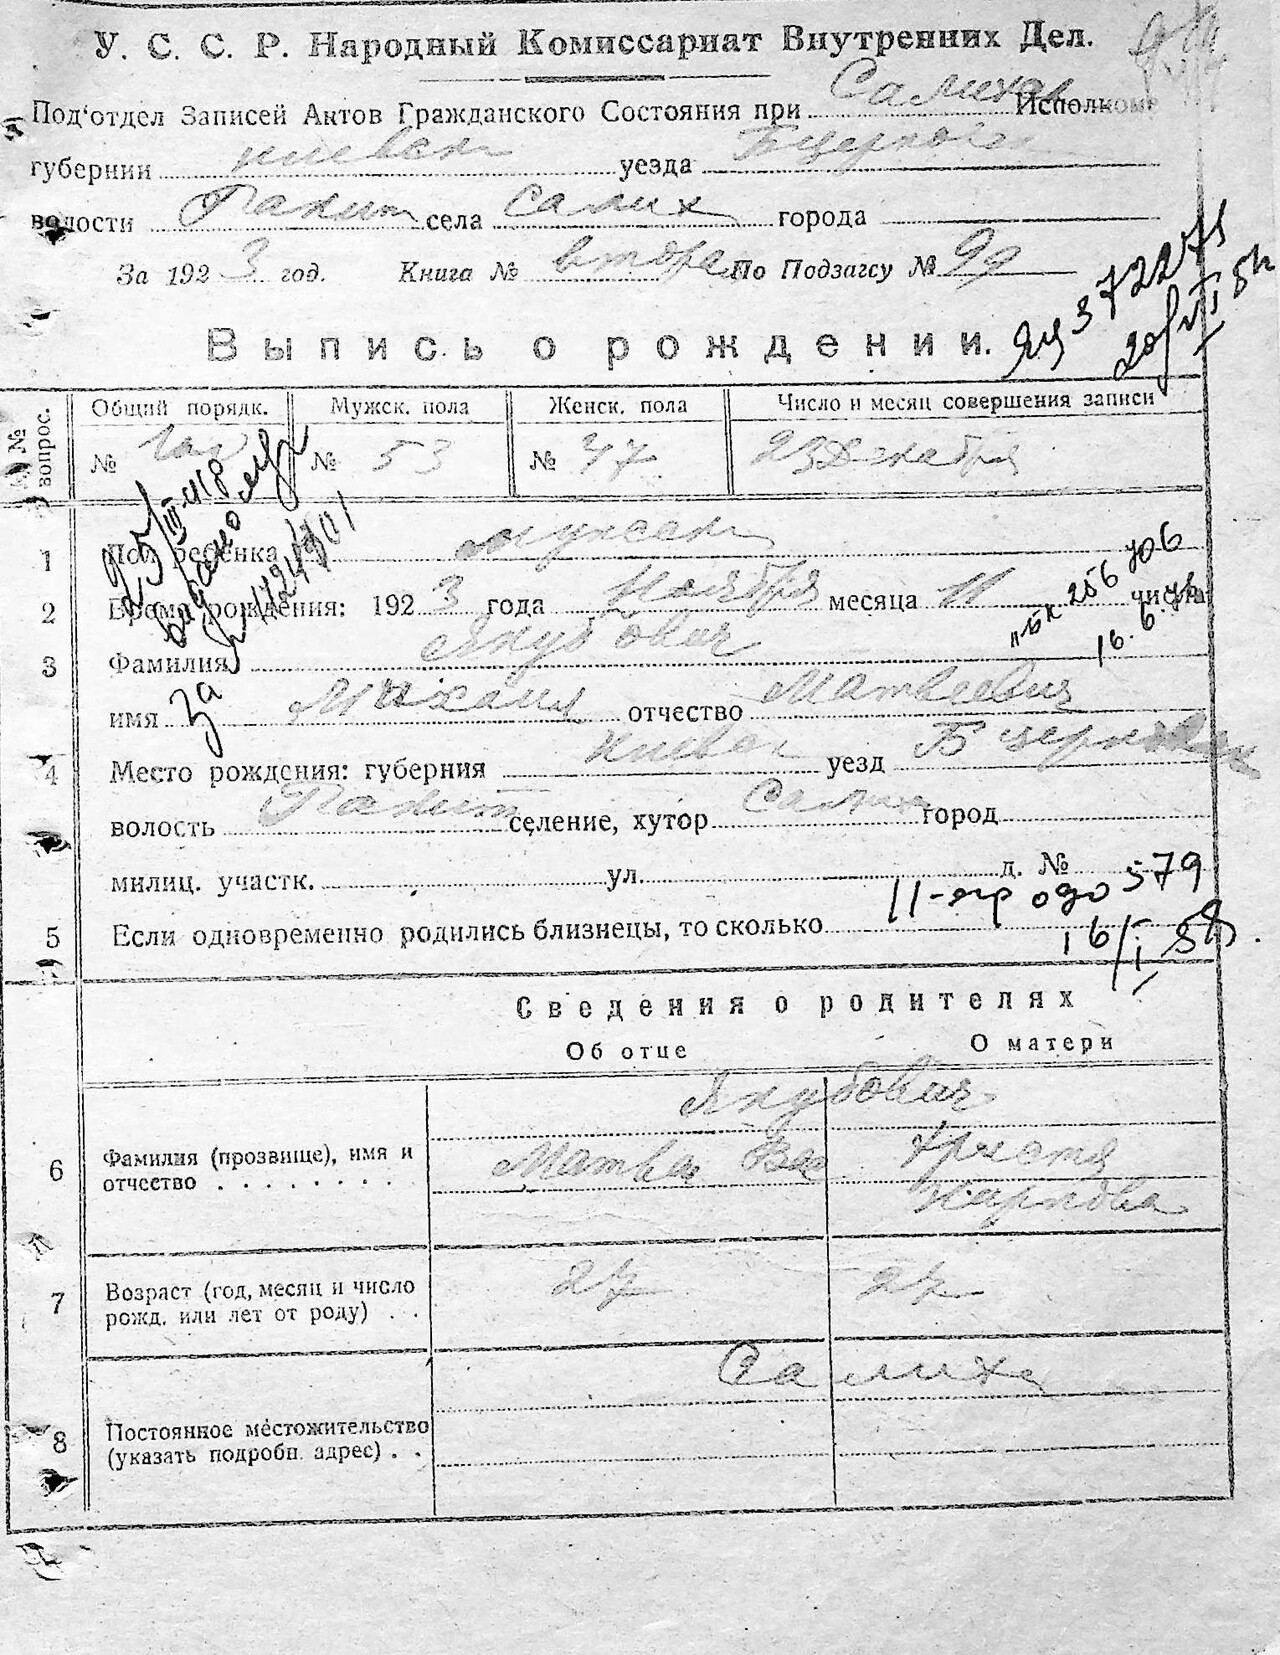 У. С. С. Р. Народный Комиссариат Внутренних Дел.
Под'отдел Записей Актов Гражданского Состояния при Салихо Исполкоме
губернии киевск уезда Бцерков
волости Ракит села Салих города
За 1923 год. Книга № вторая По Подзагсу № 99
Выпись о рождении.
№№ вопрос. Общий порядк. Мужск. пола Женск. пола Число и месяц совершения записи
№ № 53 № 47 23 Декабря
1 Пол ребенка мужск
2 Время рождения: 1923 года Ноября месяца 11 числа
3 Фамилия Якубович
имя Михаил отчество Матвеевич
4 Место рождения: губерния Киевск уезд Бцерковск
волость Ракит селение, хутор Салиха город
милиц. участк. ул. д. №
579
5 Если одновременно родились близнецы, то сколько
16/I 58.
Сведения о родителях
Об отце О матери
Якубович
6 Фамилия (прозвище), имя и отчество Матвей Вас Христя
Карповна
7 Возраст (год, месяц и число рожд. или лет от роду) 27 27
Салиха
8 Постоянное местожительство (указать подробн. адрес)